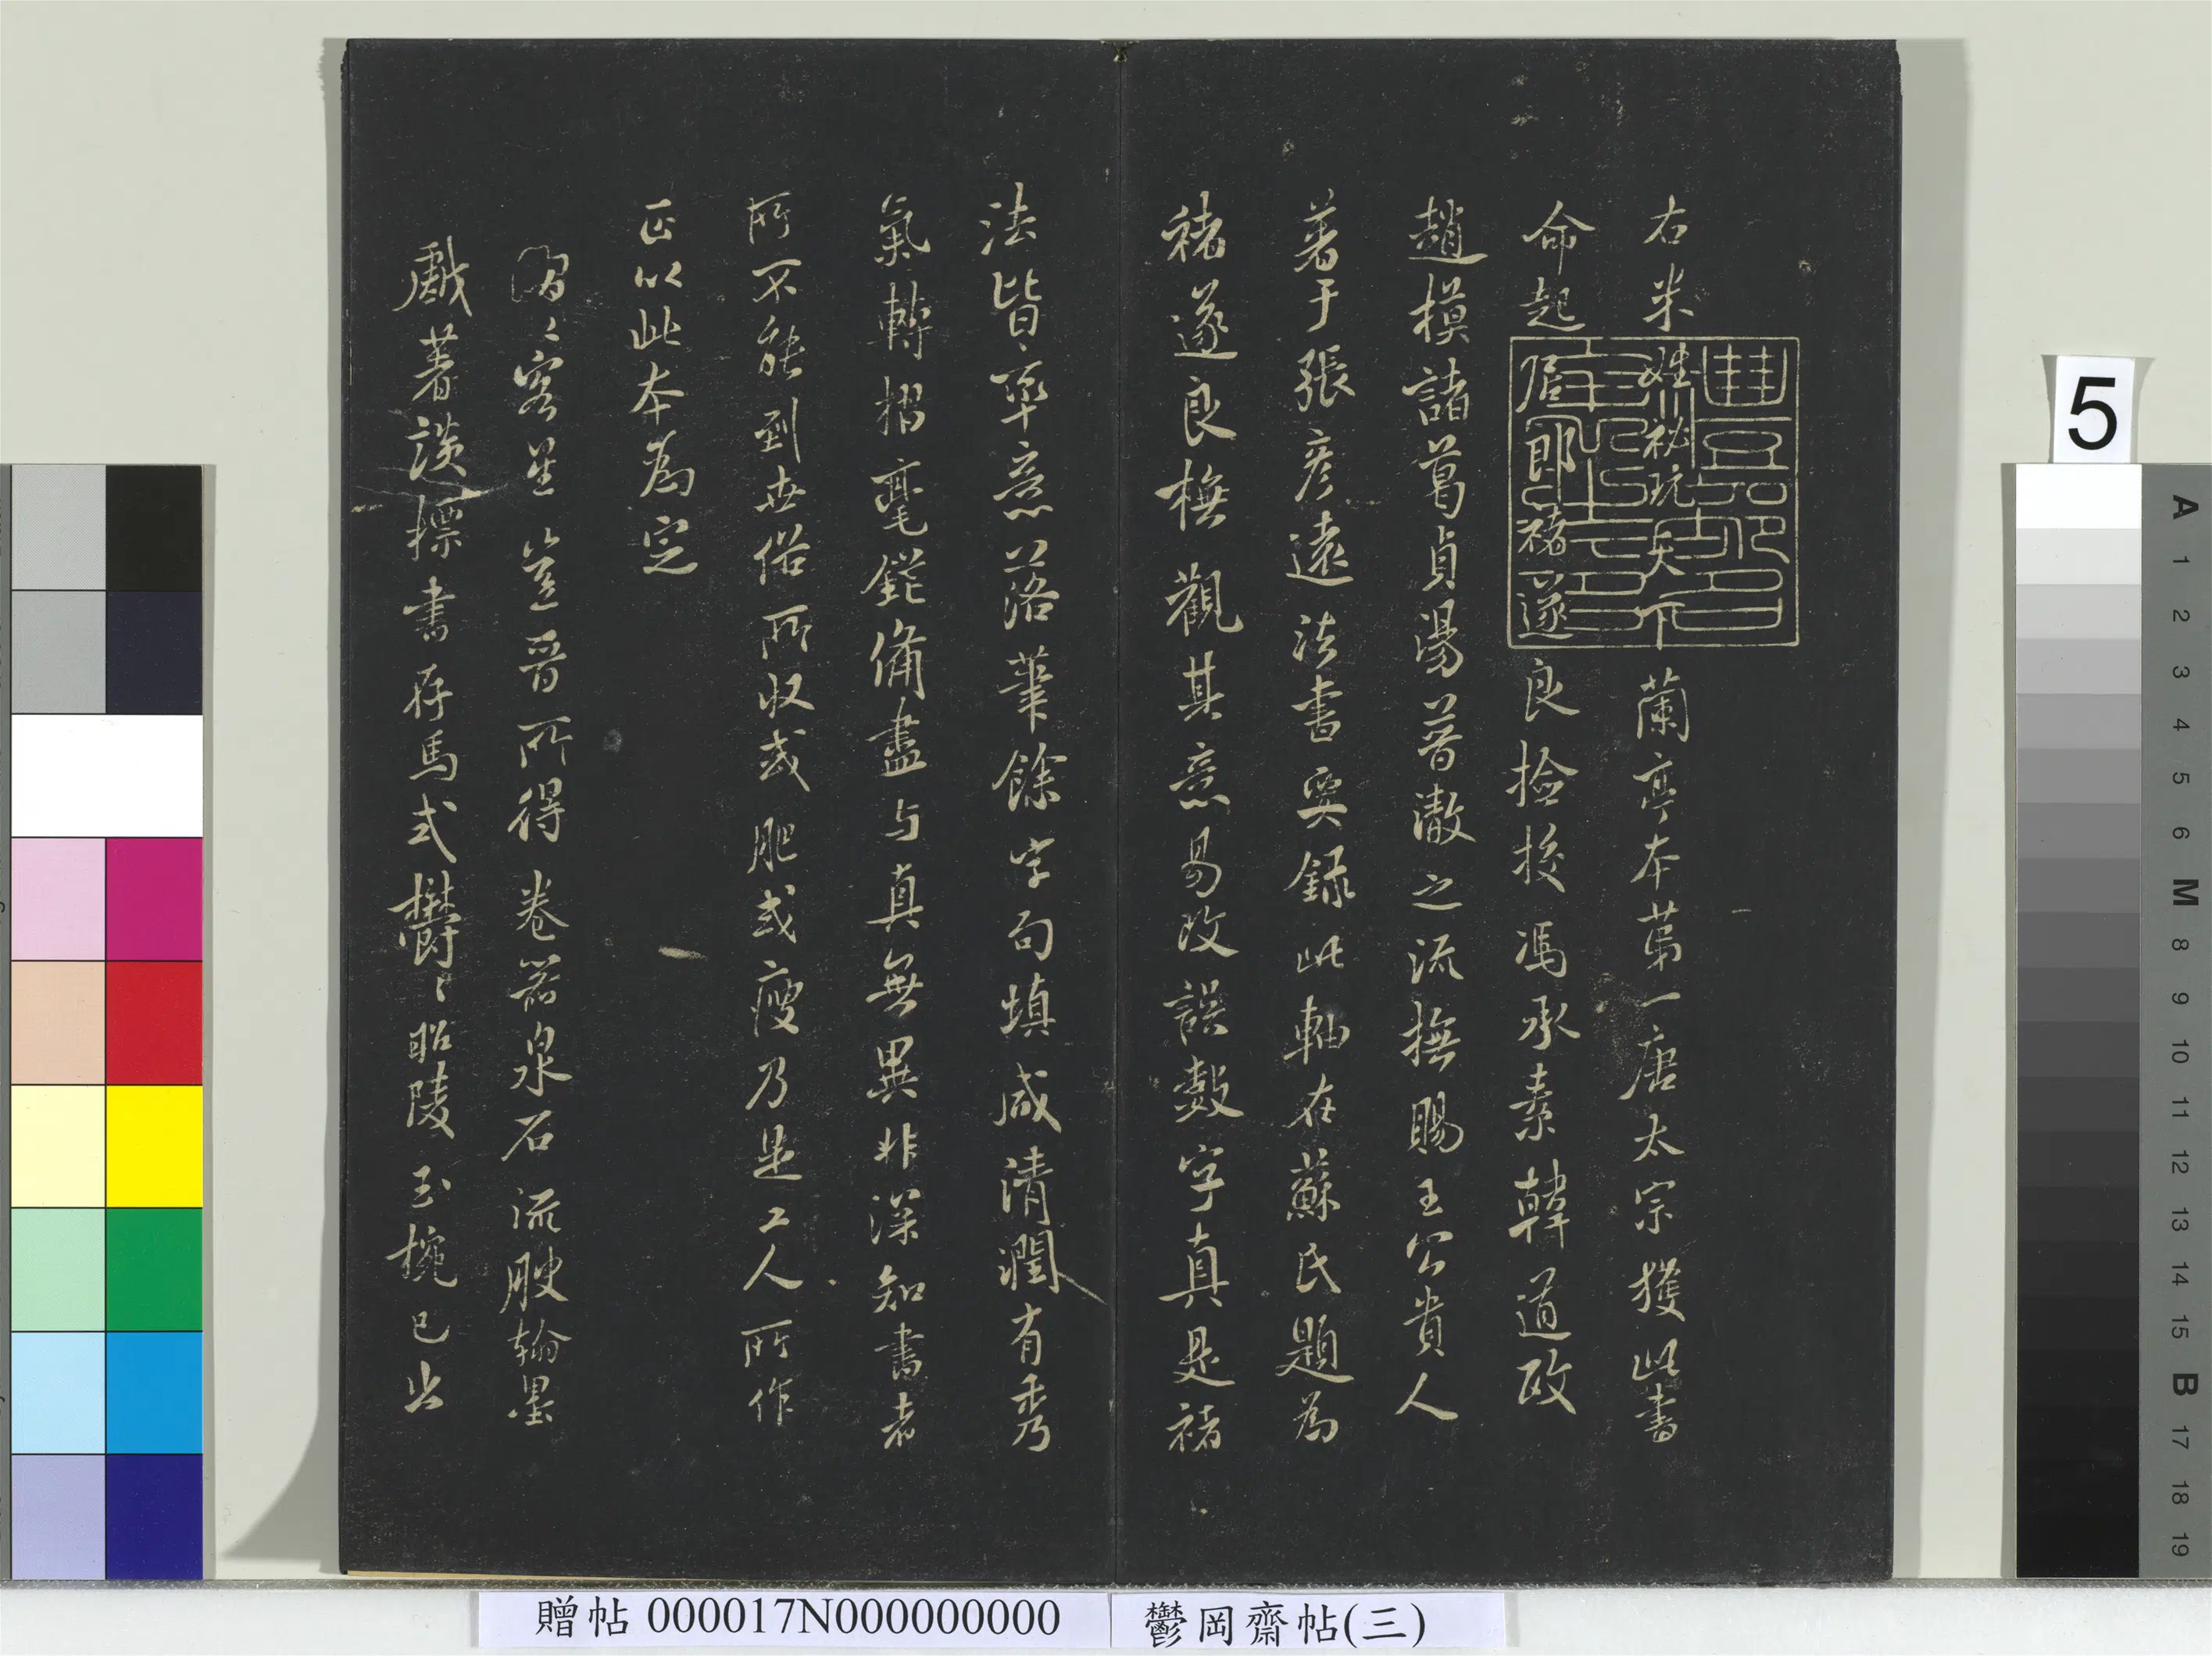 右米姓祕玩天下蘭亭本第一唐太宗獲此書
命起居郎褚遂良撿挍馮承素韓道政
趙模諸葛貞湯普澈之流撫賜王公貴人
著于張彥遠法書要錄此軸在蘇氏題為
褚遂良橅觀其意易改誤數字真是褚
法皆率意落筆餘字句填咸清潤有秀
氣轉摺毫鋩備盡与真無異非深知書者
所不能到世俗所収或肥或瘦乃是工人所作
正以此本為定
熠〻客星豈晉所得卷器泉石流腴翰墨
戲著談標書存馬式鬱〻昭陵玉椀已出
5
A
1
2
3
4
5
6
M
8
9
10
11
12
13
14
15
B
17
18
19
贈帖 000017N000000000
鬱岡齋帖(三)